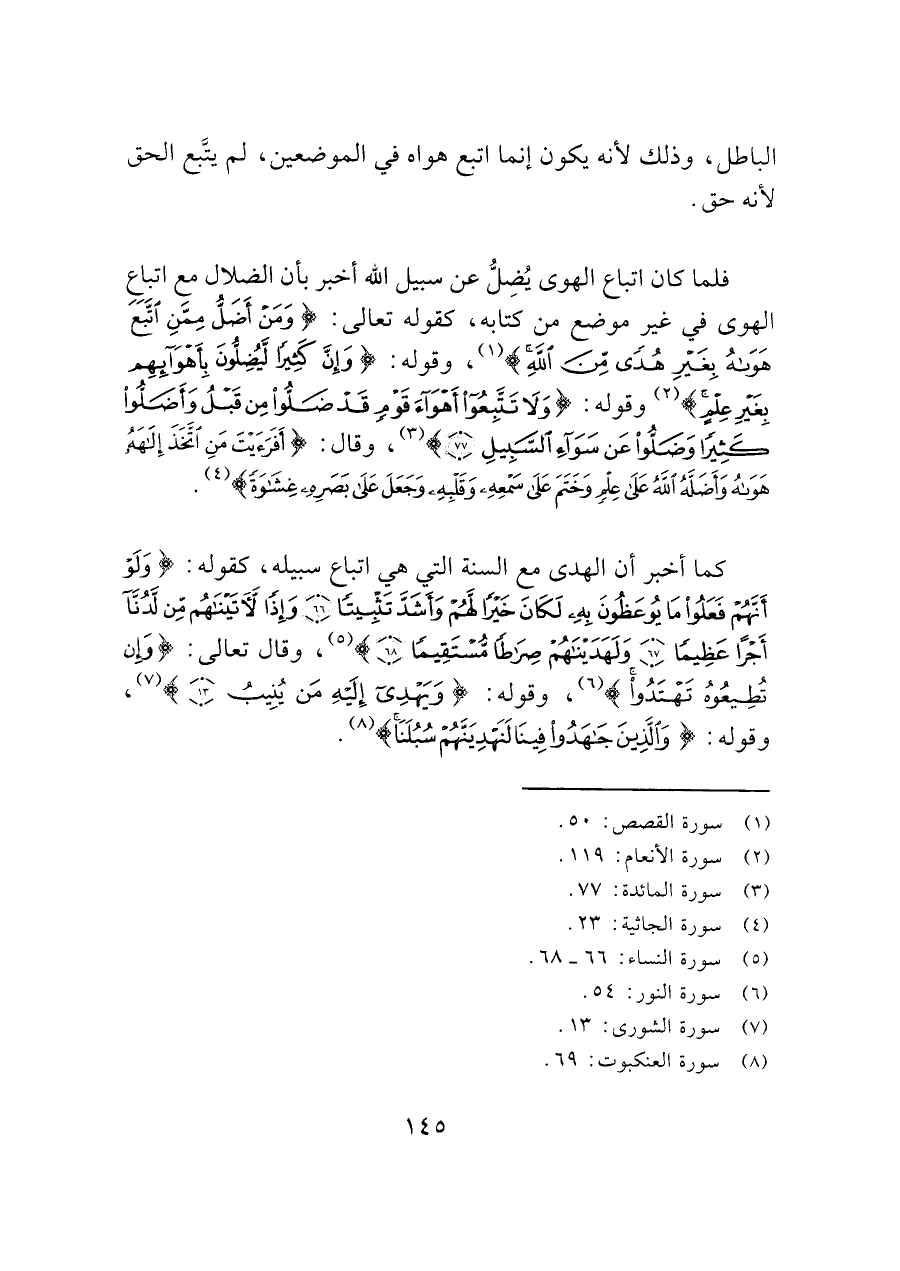 الباطل، وذلك لأنه يكون إنما اتبع هواه في الموضعين، لم يتَّبع الحق
لأنه حق.
فلما كان اتباع الهوى يُضِلُّ عن سبيل الله أخبر بأن الضلال مع اتباع
الهوى في غير موضع من كتابه، كقوله تعالى: ﴿ وَمَنْ أَضَلُّ مِمَّنِ ٱتَّبَعَ
هَوَىٰهُ بِغَيْرِ هُدًى مِّنَ ٱللَّهِ ۚ﴾(١)، وقوله: ﴿ وَإِنَّ كَثِيرًا لَّيُضِلُّونَ بِأَهْوَآئِهِم
بِغَيْرِ عِلْمٍ ۚ﴾(٢) وقوله: ﴿ وَلَا تَتَّبِعُوٓا۟ أَهْوَآءَ قَوْمٍ قَدْ ضَلُّوا۟ مِن قَبْلُ وَأَضَلُّوا۟
كَثِيرًا وَضَلُّوا۟ عَن سَوَآءِ ٱلسَّبِيلِ ٧٧ ﴾(٣)، وقال: ﴿ أَفَرَءَيْتَ مَنِ ٱتَّخَذَ إِلَٰهَهُۥ
هَوَىٰهُ وَأَضَلَّهُ ٱللَّهُ عَلَىٰ عِلْمٍ وَخَتَمَ عَلَىٰ سَمْعِهِۦ وَقَلْبِهِۦ وَجَعَلَ عَلَىٰ بَصَرِهِۦ غِشَٰوَةً ﴾(٤).
كما أخبر أن الهدى مع السنة التي هي اتباع سبيله، كقوله: ﴿ وَلَوْ
أَنَّهُمْ فَعَلُوا۟ مَا يُوعَظُونَ بِهِۦ لَكَانَ خَيْرًا لَّهُمْ وَأَشَدَّ تَثْبِيتًا ٦٦ وَإِذًا لَّءَاتَيْنَٰهُم مِّن لَّدُنَّآ
أَجْرًا عَظِيمًا ٦٧ وَلَهَدَيْنَٰهُمْ صِرَٰطًا مُّسْتَقِيمًا ٦٨ ﴾(٥)، وقال تعالى: ﴿ وَإِن
تُطِيعُوهُ تَهْتَدُوا۟ ۚ ﴾(٦)، وقوله: ﴿ وَيَهْدِىٓ إِلَيْهِ مَن يُنِيبُ ١٣ ﴾(٧)،
وقوله: ﴿ وَٱلَّذِينَ جَٰهَدُوا۟ فِينَا لَنَهْدِيَنَّهُمْ سُبُلَنَا ۚ﴾(٨).
(١) سورة القصص: ٥٠.
(٢) سورة الأنعام: ١١٩.
(٣) سورة المائدة: ٧٧.
(٤) سورة الجاثية: ٢٣.
(٥) سورة النساء: ٦٦ ـ ٦٨.
(٦) سورة النور: ٥٤.
(٧) سورة الشورى: ١٣.
(٨) سورة العنكبوت: ٦٩.
١٤٥